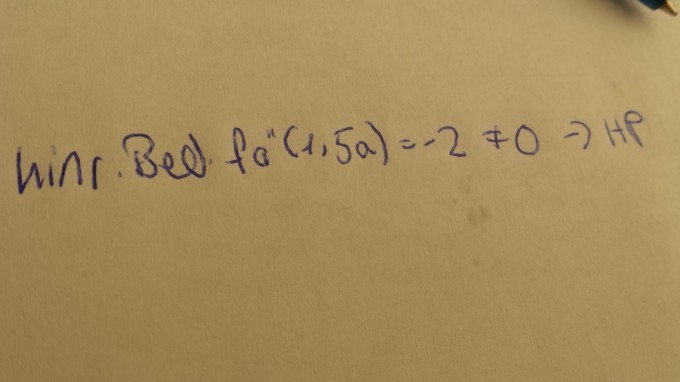 hinr. Bed. fa"(1,5a)=-2 ≠0 → HP